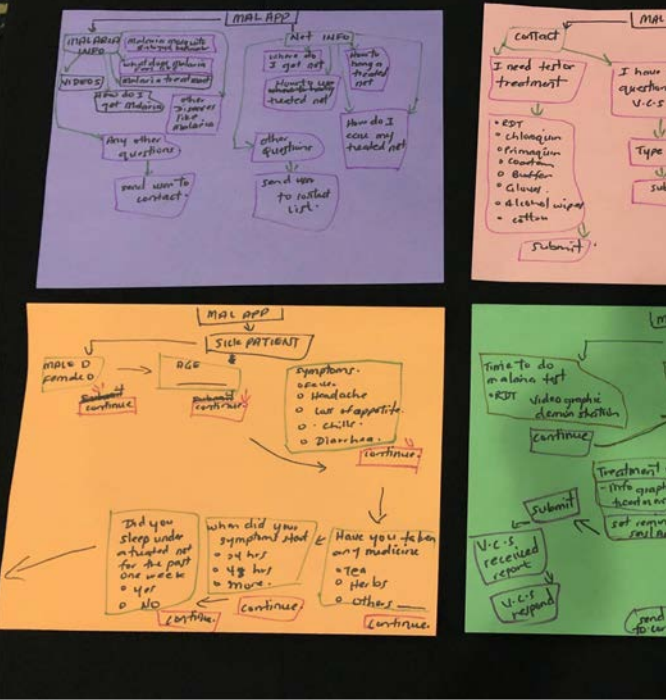 MAL APP
MALARIA
INFO
VIDEOS
malaria treatment
How do I
get malaria
other
Diseases
like
malaria
Any other
questions
send user to
contact.
Net INFO
where do
I get net
How to
hang a
treated
net
treated net
How do I
care my
treated net
other
questions
send user
to contact
list.
MAL
contact
I need test or
treatment
• RDT
• chloroquin
• Primaquin
• Coartem
• Buffer
• Gloves
• Alcohol wipes
• cotton
submit
I have
question
V.C.S
Type
sub
MAL APP
SICK PATIENT
MALE
female
continue
AGE
continue
Symptoms.
o Fever
o Headache
o Loss of appetite.
o chills
o Diarrhea.
continue.
Have you taken
any medicine
o Tea
o Herbs
o others
continue.
when did your
symptoms start
o 24 hrs
o 48 hrs
o more.
continue.
Did you
sleep under
a treated net
for the past
one week
o yes
o NO
continue.
Time to do
malaria test
• RDT Video graphic
demonstration
continue
Treatment
- info graph
submit
V.C.S
received
report
V.C.S
respond
send